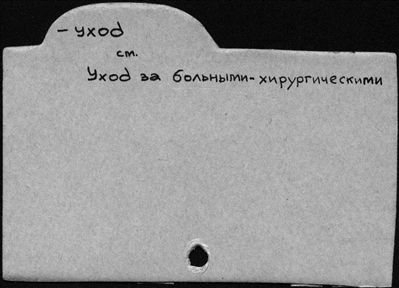 - уход
см.
Уход за больными-хирургическими